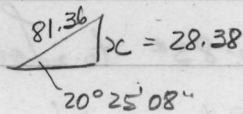 81.36
x = 28.38
20° 25' 08"